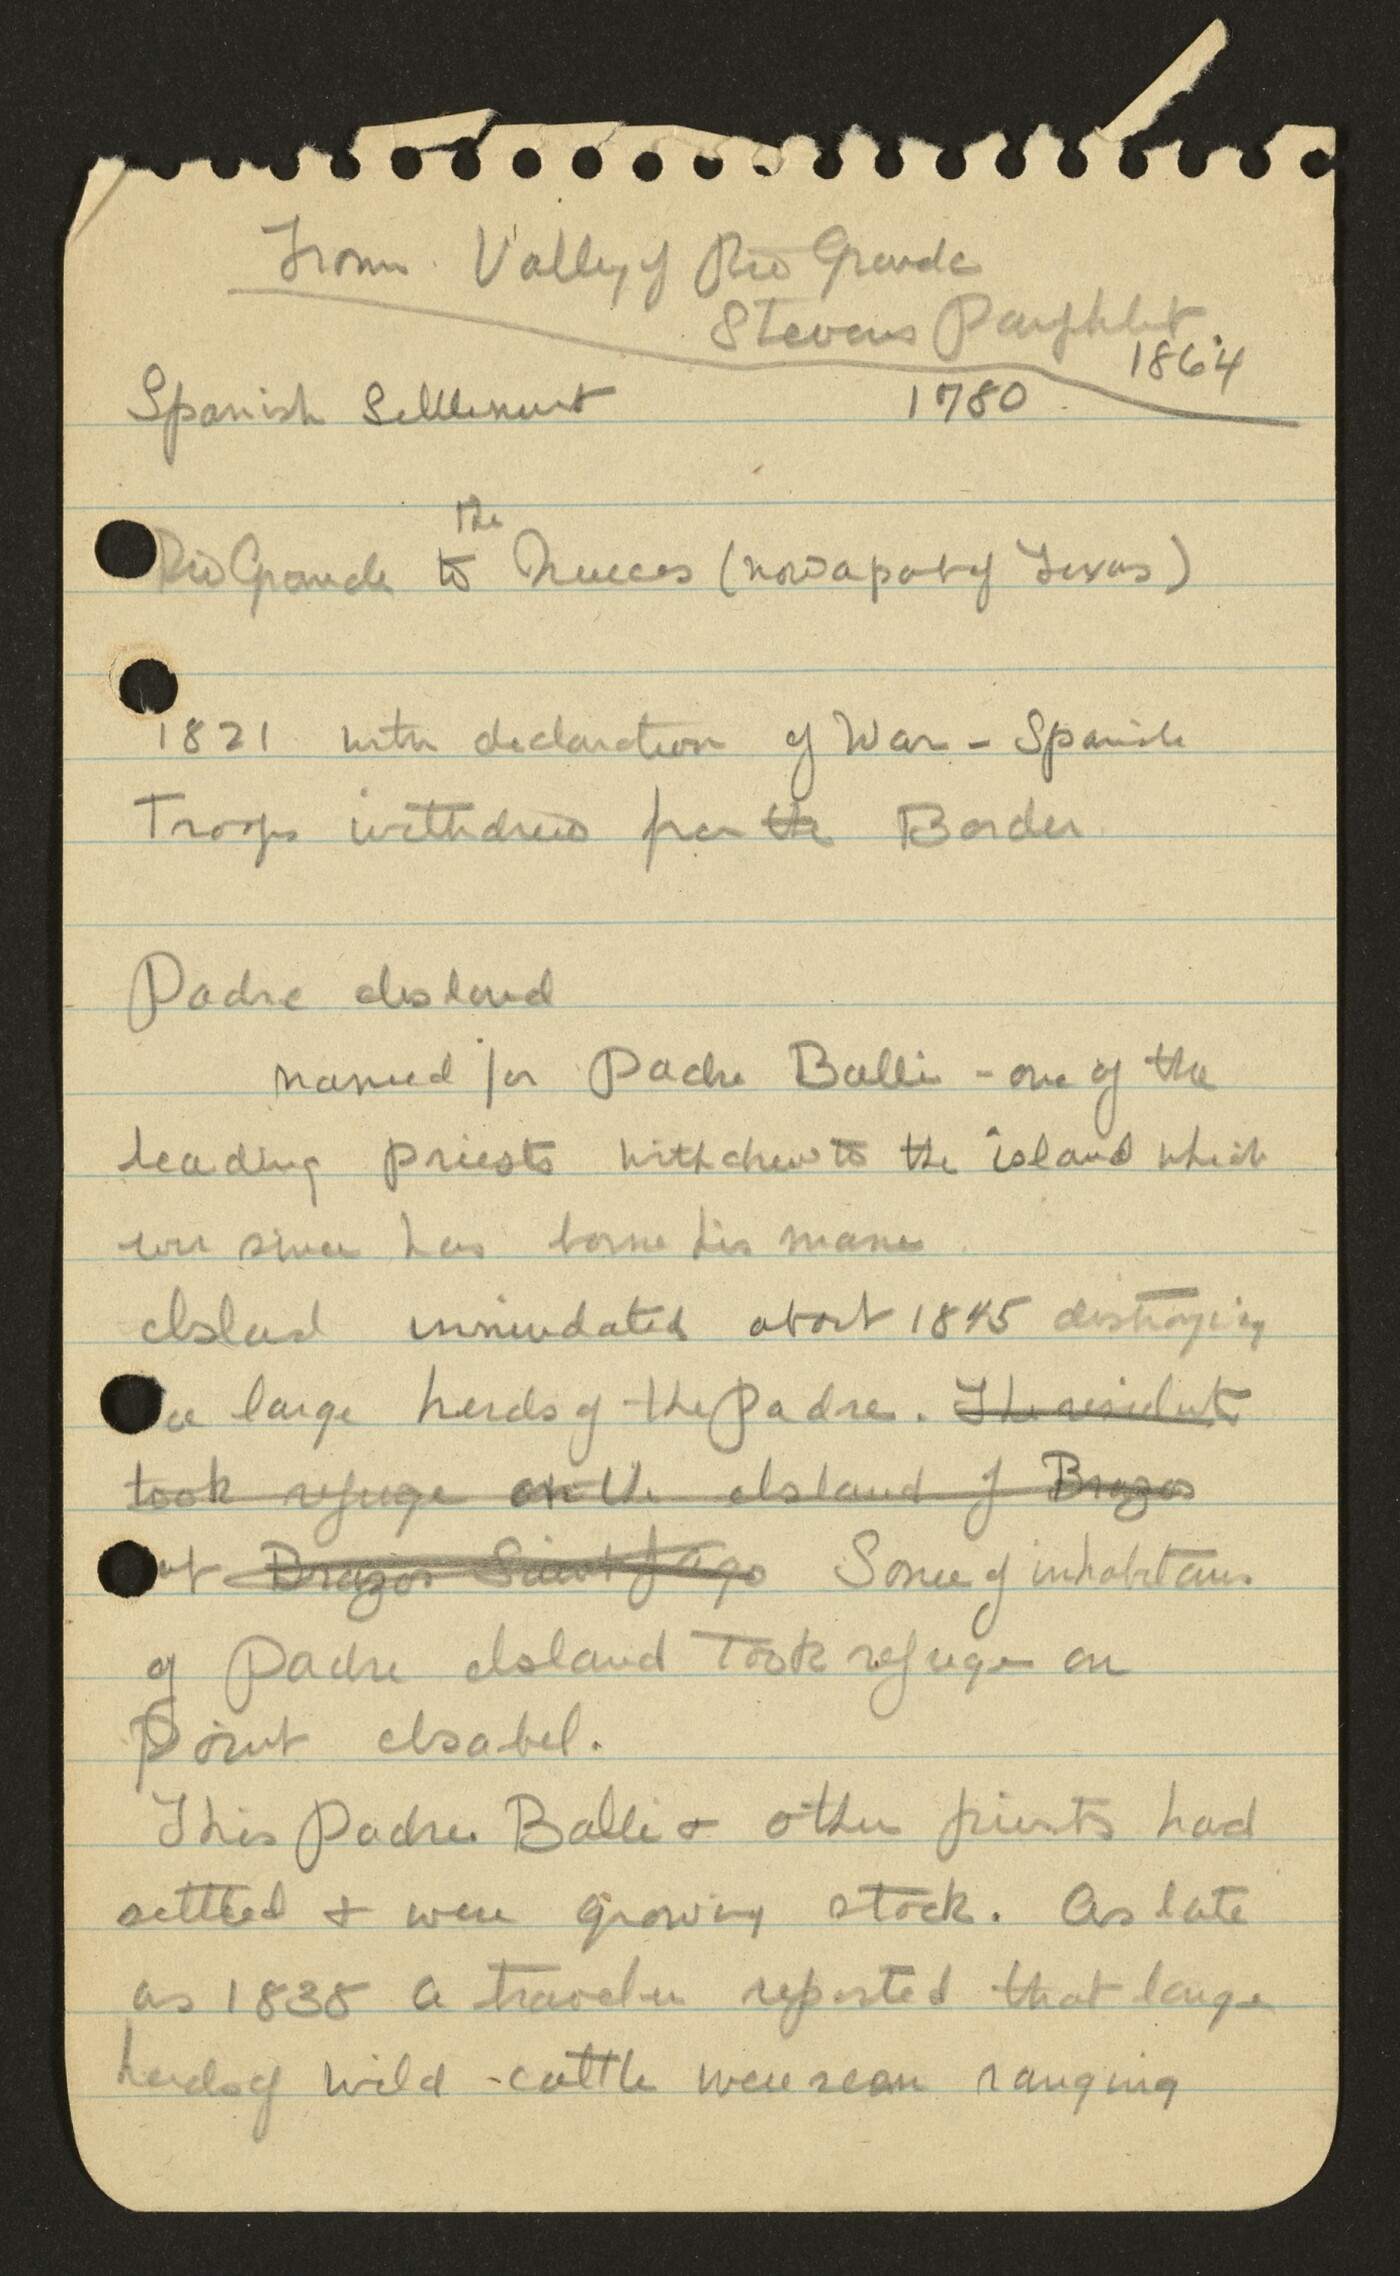 From Valley of Rio Grande
Stevens Pamphlet
1864
Spanish Settlement 1780
the
Rio Grande to Nueces (now a part of Texas)
1821 with declaration of War - Spanish
Troops withdrew from the Border
Padre Island
named for Padre Balli - one of the
leading priests withdrew to the island which
ever since has borne his name
Island innundated about 1845 distroying
large herds of the Padre. The residents
took refuge on the Island of Brazos
at Brazos Saint Jago Some of inhabitans
of Padre Island Took refuge on
Point Isabel.
This Padre Balli & other priests had
settled & were growing stock. As late
as 1838 a traveler reported that large
herds of wild cattle were seen ranging